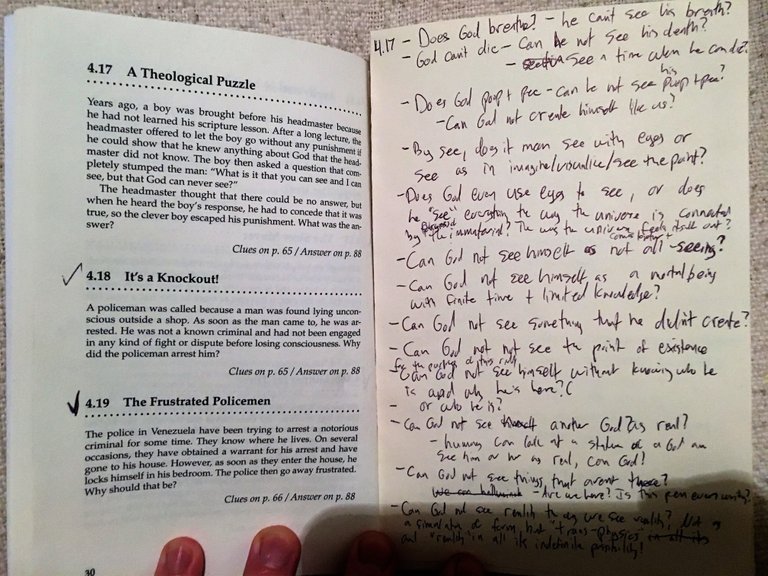 4.17 A Theological Puzzle
Years ago, a boy was brought before his headmaster because
he had not learned his scripture lesson. After a long lecture, the
headmaster offered to let the boy go without any punishment if
he could show that he knew anything about God that the head-
master did not know. The boy then asked a question that com-
pletely stumped the man: "What is it that you can see and I can
see, but that God can never see?"
The headmaster thought that there could be no answer, but
when he heard the boy's response, he had to concede that it was
true, so the clever boy escaped his punishment. What was the an-
swer?
Clues on p. 65 / Answer on p. 88
4.18 It's a Knockout!
A policeman was called because a man was found lying uncon-
scious outside a shop. As soon as the man came to, he was ar-
rested. He was not a known criminal and had not been engaged
in any kind of fight or dispute before losing consciousness. Why
did the policeman arrest him?
Clues on p. 65 / Answer on p. 88
4.19 The Frustrated Policemen
The police in Venezuela have been trying to arrest a notorious
criminal for some time. They know where he lives. On several
occasions, they have obtained a warrant for his arrest and have
gone to his house. However, as soon as they enter the house, he
locks himself in his bedroom. The police then go away frustrated.
Why should that be?
Clues on p. 66 / Answer on p. 88
30
4.17 - Does God breathe? - he can't see his breath?
- God can't die - Can he not see his death?
- see a time when he can die?
- Does God poop + pee - can he not see his poop + pee?
- Can God not create himself like us?
- By see, does it mean see with eyes or
see as in imagine/visualize/see the point?
- Does God even use eyes to see, or does
he "see" everything the way the universe is connected
by the immaterial? The way the universe feels itself out?
- Can God not see himself as not all-seeing?
- Can God not see himself as a mortal being
with finite time + limited knowledge?
- Can God not see something that he didn't create?
- Can God not not see the point of existence
for the purpose of this
Can God not see himself without knowing who he
is and why he's here?
- or who he is?
- Can God not see another God as real?
- humans can look at a statue of a God and
see him or her as real, can God?
- Can God not see things that aren't there?
- Are we here? Is this pen even
- Can God not see reality the way we see reality? Not as
a simulation of form, but "trans-physics"
and "reality" in all its indefinite